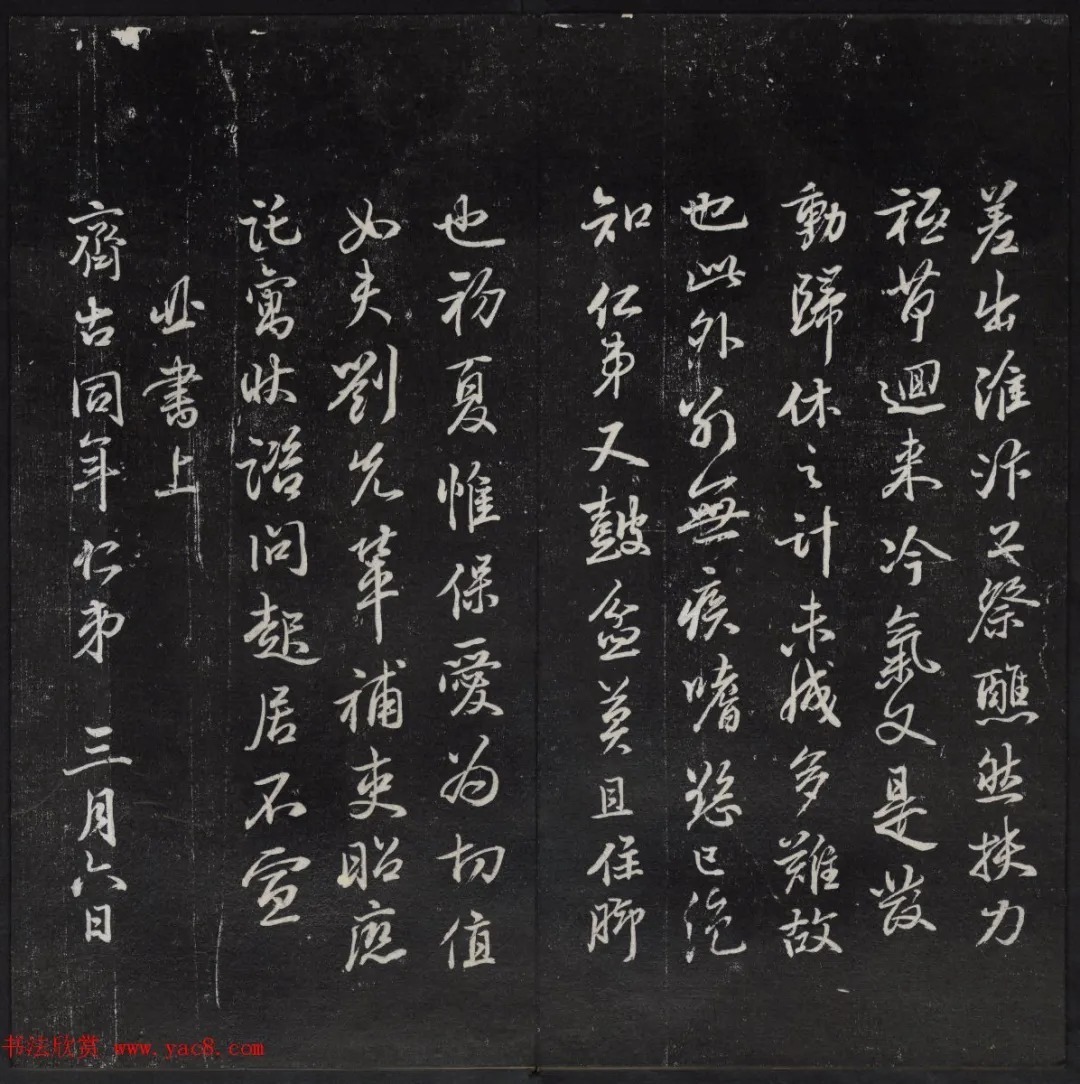 差出淮汴祭醮然扶力
極迴来冷氣又是發
動歸休之計未成多難故
也此外別無疾嗜慾已絕
知仁弟又鼓盆莫且住腳
也初夏惟保愛為切值
如夫劉先輩補吏昭應
託寓狀諮問起居不宣
書上
齊古同年仁弟 三月六日
书法欣赏 www.yac8.com